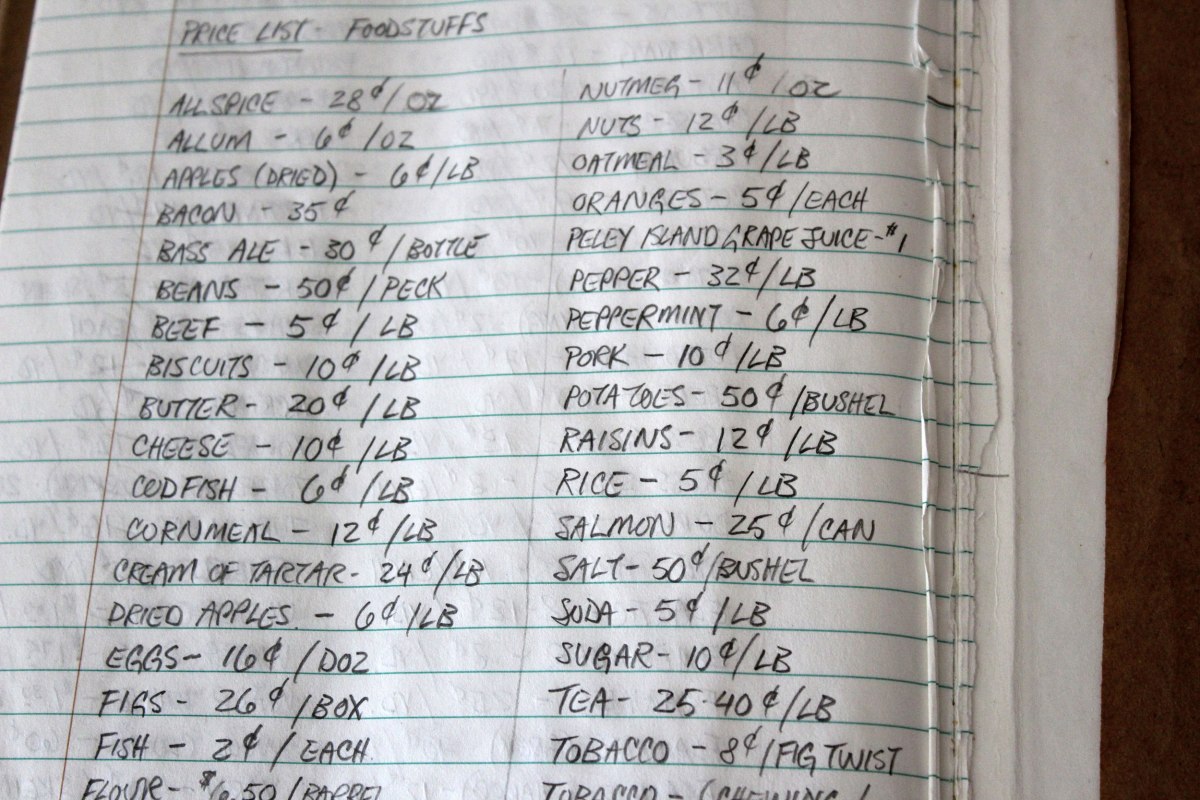 PRICE LIST - FOODSTUFFS
ALLSPICE - 28¢/OZ
ALLUM - 6¢/OZ
APPLES (DRIED) - 6¢/LB
BACON - 35¢
BASS ALE - 30¢/BOTTLE
BEANS - 50¢/PECK
BEEF - 5¢/LB
BISCUITS - 10¢/LB
BUTTER - 20¢/LB
CHEESE - 10¢/LB
CODFISH - 6¢/LB
CORNMEAL - 12¢/LB
CREAM OF TARTAR - 24¢/LB
DRIED APPLES - 6¢/LB
EGGS - 16¢/DOZ
FIGS - 26¢/BOX
FISH - 2¢/EACH
FLOUR - $6.50/BARREL
NUTMEG - 11¢/OZ
NUTS - 12¢/LB
OATMEAL - 3¢/LB
ORANGES - 5¢/EACH
PELEY ISLAND GRAPE JUICE - $1
PEPPER - 32¢/LB
PEPPERMINT - 6¢/LB
PORK - 10¢/LB
POTATOES - 50¢/BUSHEL
RAISINS - 12¢/LB
RICE - 5¢/LB
SALMON - 25¢/CAN
SALT - 50¢/BUSHEL
SODA - 5¢/LB
SUGAR - 10¢/LB
TEA - 25-40¢/LB
TOBACCO - 8¢/FIG TWIST
TOBACCO - (CHEWING)